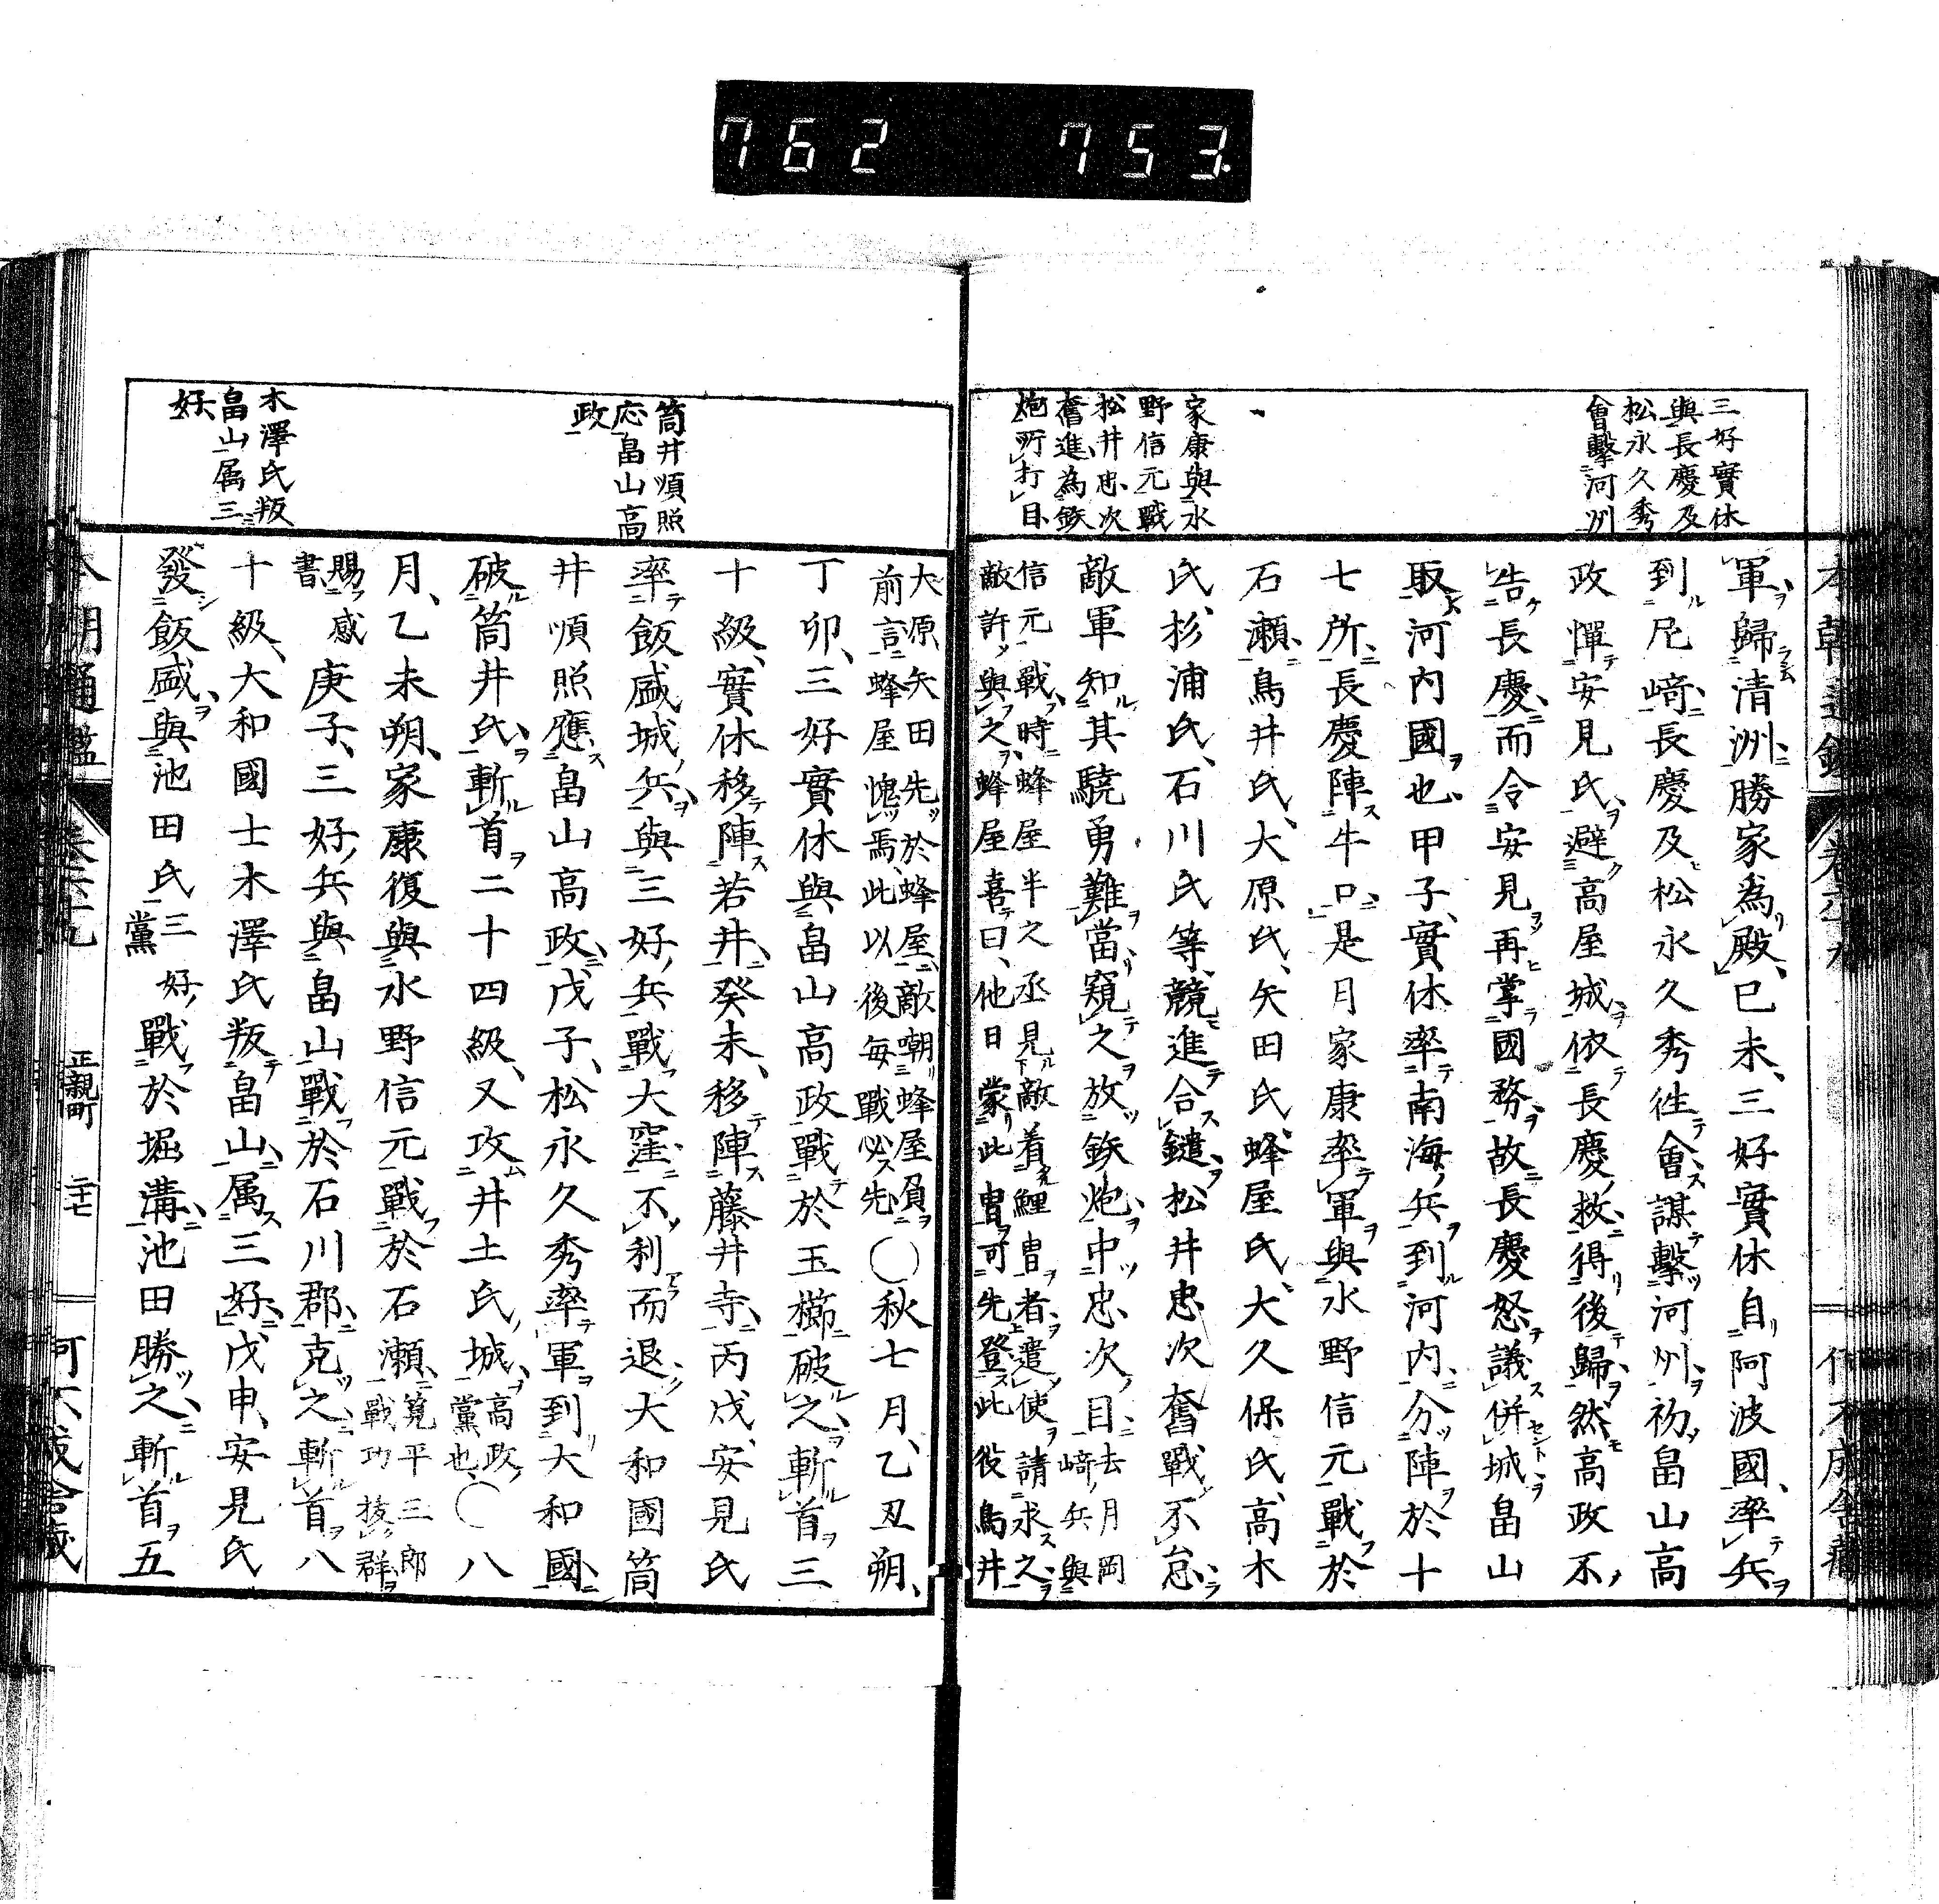 762 753
三好實休
與長慶及
松永久秀
會擊河州
家康與水
野信元戰
松井忠次
奮進為鉄
炮所打目
軍歸清洲勝家為殿、己未、三好實休自阿波國、率兵
到尼﨑、長慶及松永久秀往會、謀擊河州、初畠山高
政憚安見氏、避高屋城、依長慶救、得後歸、然高政不
告長慶、而令安見再掌國務、故長慶怒議併城畠山
取河內國也、甲子、實休率南海兵到河内、分陣於十
七所、長慶陣牛口、是月家康率軍與水野信元戰於
石瀬、鳥井氏、大原氏、矢田氏、蜂屋氏、大久保氏、高木
氏、杉浦氏、石川氏等、競進合鑓、松井忠次奮戰不怠、
敵軍知其驍勇難當、窺之放鉄炮中忠次目、去月岡
﨑兵與
信元戰、時蜂屋半之丞見敵着鯉冑者、遣使請求之、
敵許與之、蜂屋喜曰、他日蒙此冑、可先登、此役鳥井
大原矢田先於蜂屋、敵嘲蜂屋負
前言、蜂屋愧焉、此以後每戰必先、〇秋七月、乙丑朔、
丁卯、三好實休與畠山高政戰於玉櫛、破之、斬首三
十級、實休移陣若井、癸未、移陣藤井寺、丙戌、安見氏
率飯盛城兵、與三好兵戰大窪、不利而退、大和國筒
井順照應畠山高政、戊子、松永久秀率軍到大和國、
破筒井氏、斬首二十四級、又攻井土氏城、高政
黨也、〇八
月、乙未朔、家康復與水野信元戰於石瀬、筧平三郎
戰功拔群
賜感
書、庚子、三好兵與畠山戰於石川郡、克之、斬首八
十級、大和國士木澤氏叛畠山、属三好、戊申、安見氏
發飯盛、與池田氏三好
黨戰於堀溝、池田勝之、斬首五
筒井順照
応畠山高
政
木澤氏叛
畠山属三
好
正親町
二十七